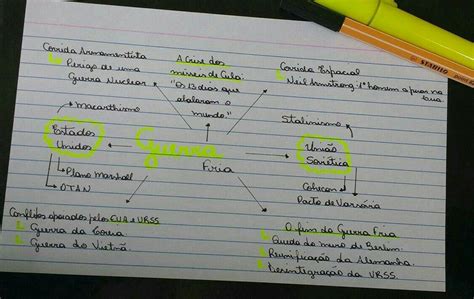 Corrida Armamentista
Perigo de uma
Guerra Nuclear
A Crise dos
mísseis de Cuba:
"Os 13 dias que
abalaram o
mundo."
Corrida Espacial
Neil Armstrong: 1º homem a pisar na
lua
Macarthismo
Estados
Unidos
Plano Marshall
OTAN
Guerra
Fria
Stalinismo
União
Soviética
Comecon
Pacto de Varsóvia
Conflitos apoiados pelos EUA e URSS
Guerra da Coreia
Guerra do Vietnã
O fim da Guerra Fria
Queda do muro de Berlim.
Reunificação da Alemanha.
Desintegração da URSS.
STABILO